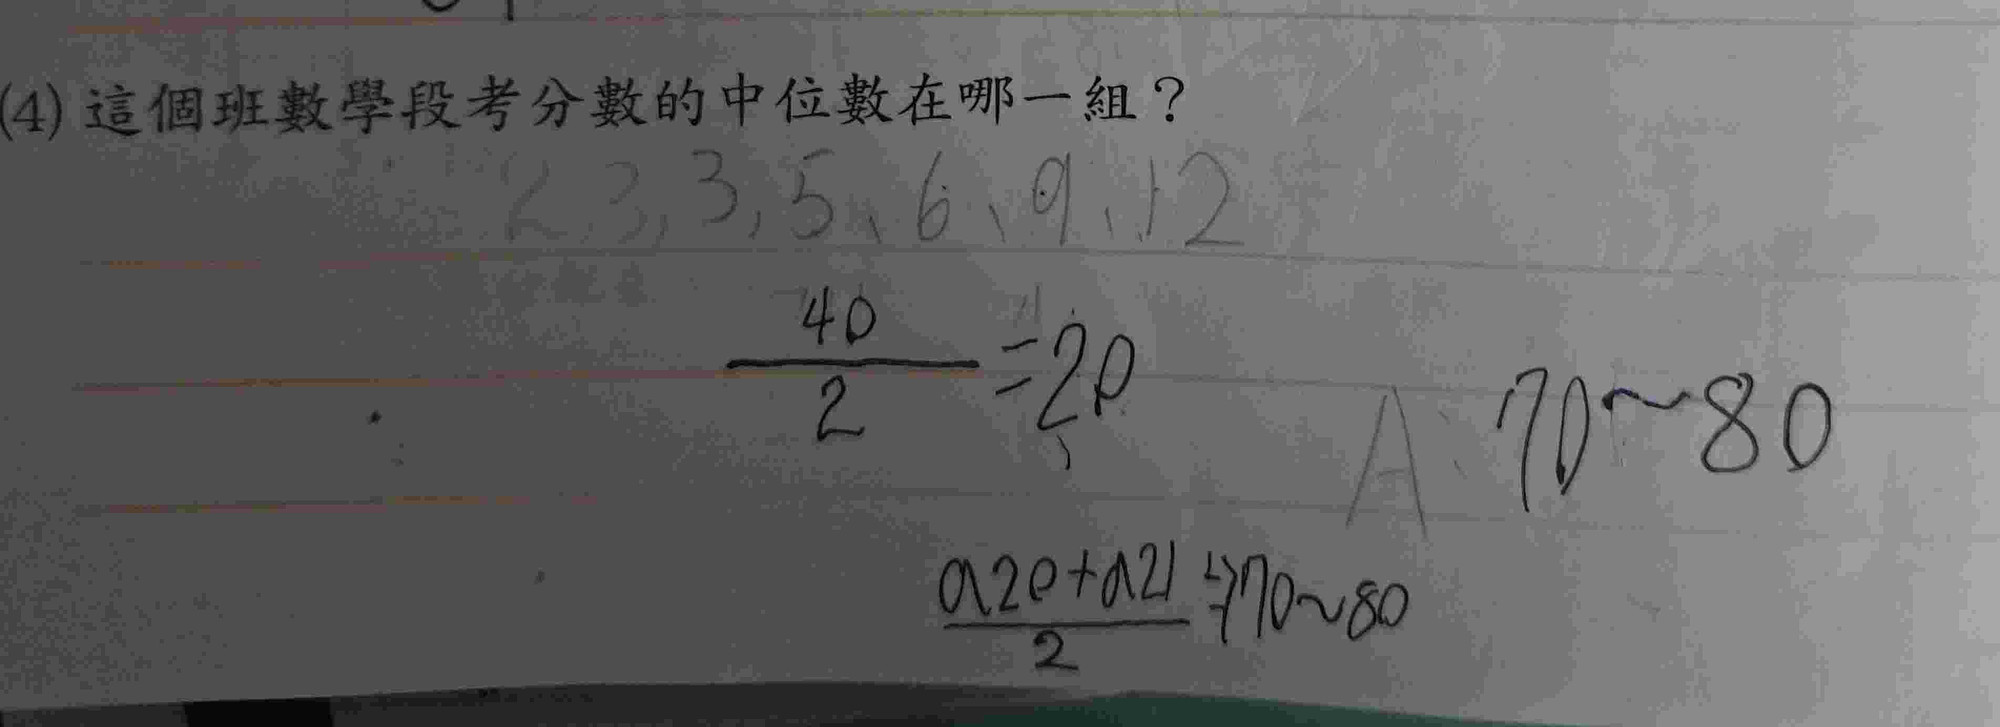 (4) 這個班數學段考分數的中位數在哪一組？
2 3, 3, 5、6、9、12
40
2
=20
A: 70~80
a20+a21
2
→70~80